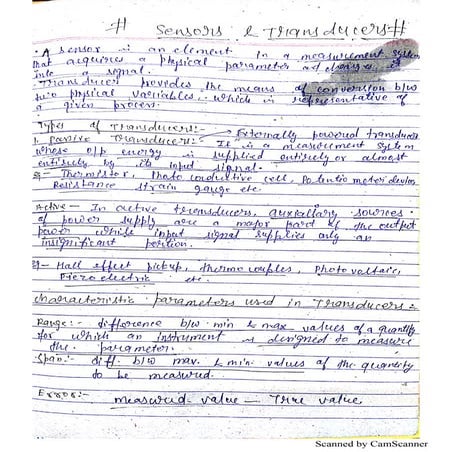 # Sensors & Transducers #
• A sensor is an element in a measurement system
that acquires a physical parameter and changes it
into a signal.
Transducer provides the means of conversion b/w
two physical variables, which is representative of
a given process.
Types of Transducers:-
1. Passive Transducer:- Externally powered transducer
It is a measurement system
whose opp energy is supplied entirely or almost
entirely by its input signal.
eg- Thermistor, Photo conductive cell, Potentiometer device,
Resistance strain gauge etc.
Active - In active transducers, auxiliary sources
of power supply are a major part of the output
power while input signal supplies only an
insignificant portion.
eg- Hall effect pickup, thermocouples, photovoltaic,
Piezoelectric etc.
Characteristic parameters used in Transducers:-
Range:- difference b/w min & max values of a quantity
for which an instrument is designed to measure
the parameter.
Span:- diff. b/w max. & min. values of the quantity
to be measured.
Error:-
measured value - True value
Scanned by CamScanner